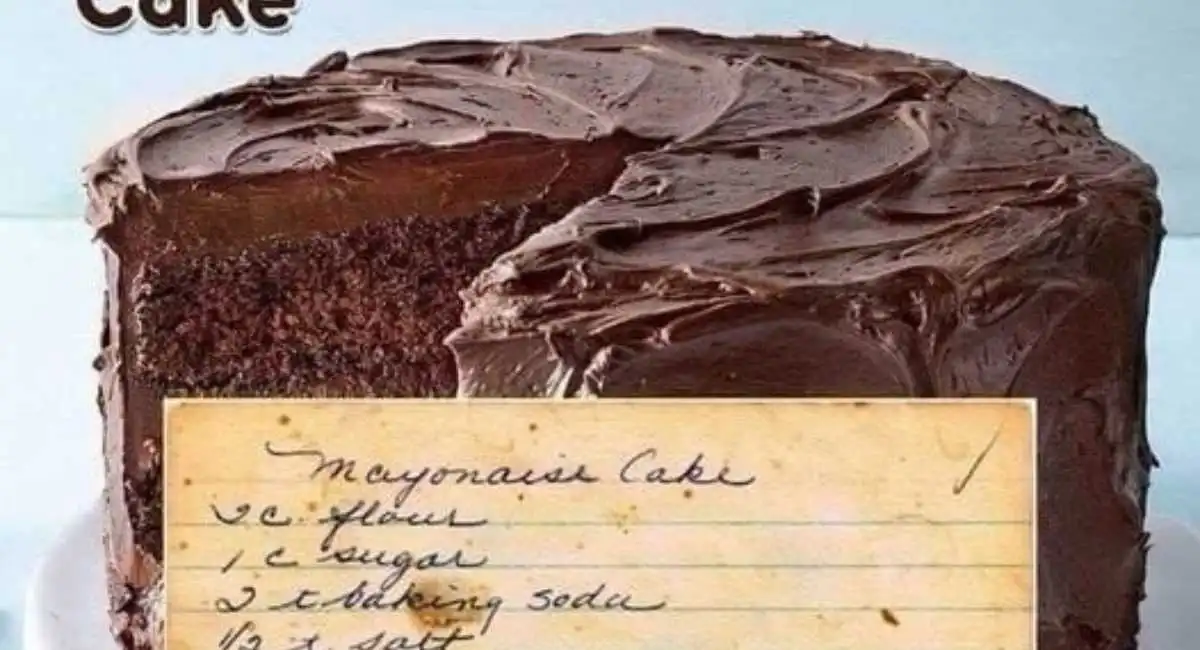 Cake
Mayonaise Cake
2 c flour
1 c sugar
2 t baking soda
1/2 t salt